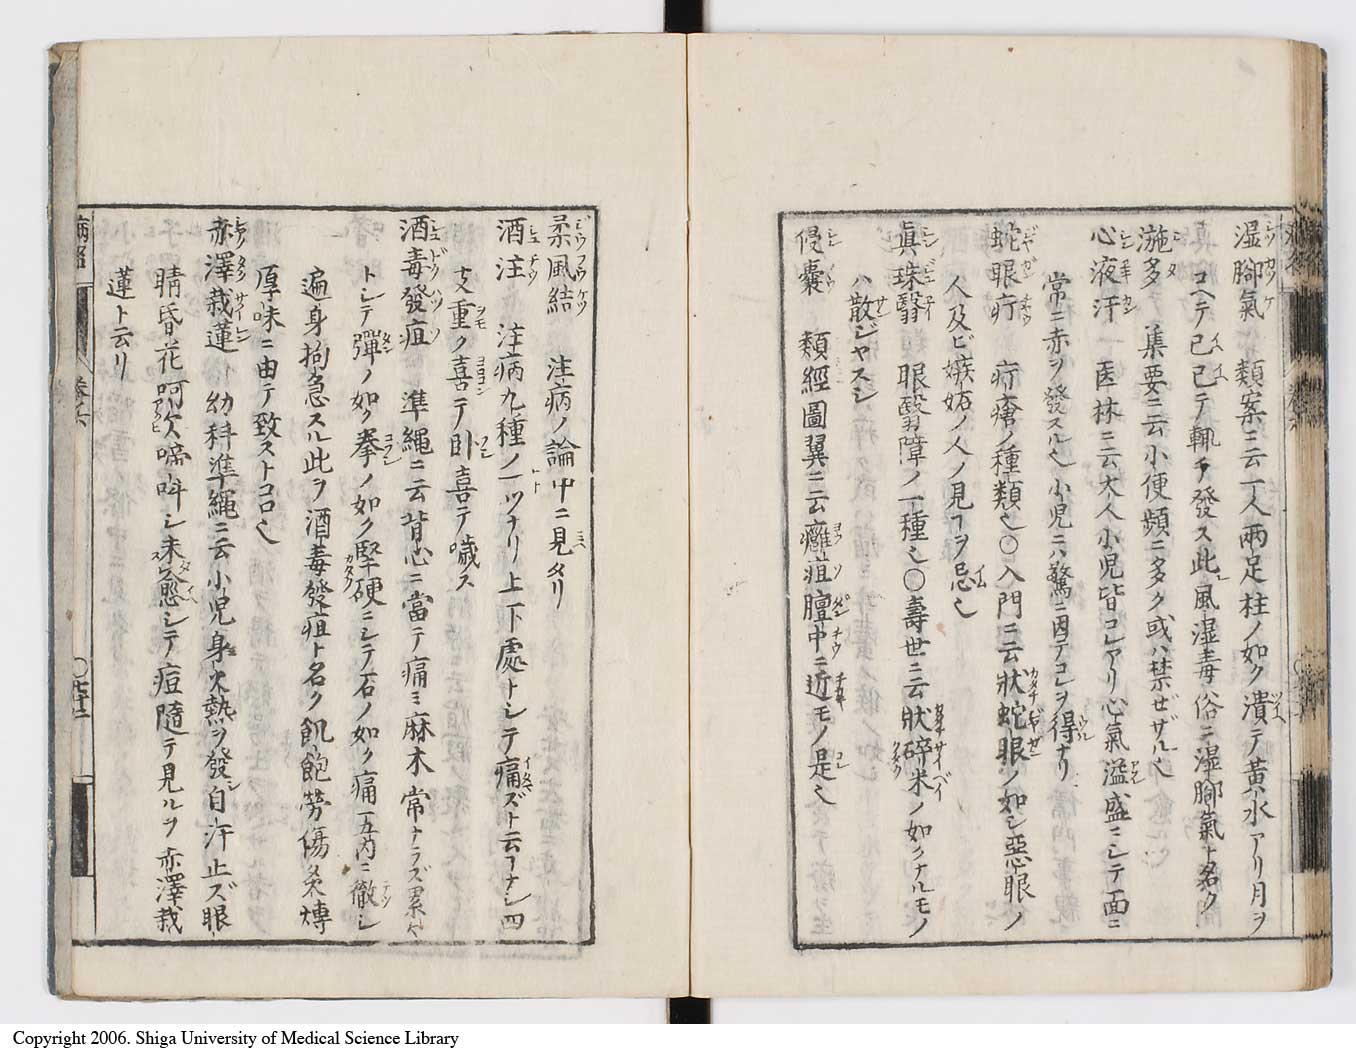 湿脚氣　類案ニ云一人兩足柱ノ如ク潰テ黃水アリ月ヲ
コヘテ已ニ已テ輙チ發ス此風湿毒俗ニ湿脚氣ト名ク
㴰多　集要ニ云小便頻ニ多ク或ハ禁ぜザル也
心液汗　医林ニ云大人小児皆コレアリ心氣溢盛ニシテ面ニ
常ニ赤ヲ發スル也小児ニハ驚ニ因テコレヲ得ナリ
蛇眼疔　疔瘡ノ種類也〇入門ニ云狀蛇眼ノ如シ惡眼ノ
人及ビ嫉妬ノ人ノ見ヿヲ忌也
眞珠翳　眼翳障ノ一種也〇壽世ニ云狀碎米ノ如クナルモノ
ハ散ジヤスシ
侵囊　類經圖翼ニ云癰疽膻中ニ近モノ是也
柔風結　注病ノ論中ニ見タリ
酒注　注病九種ノ一ツナリ上下處トシテ痛ズト云ヿナシ四
支重ク喜テ臥喜テ噦ス
酒毒發疽　準繩ニ云背心ニ當テ痛ミ麻木常ナラズ累々
トシテ彈ノ如ク拳ノ如ク堅硬ニシテ石ノ如ク痛五內ニ徹シ
遍身拘急スル此ヲ酒毒發疽ト名ク飢飽勞傷炙煿
厚味ニ由テ致ストコロ也
赤澤栽蓮　幼科準繩ニ云小児身大熱ヲ發自汗止ズ眼
睛昏花呵欠啼呌シ未愈シテ痘隨テ見ルヲ赤澤栽
蓮ト云リ
病名
卷六
〇七十二
Copyright 2006. Shiga University of Medical Science Library